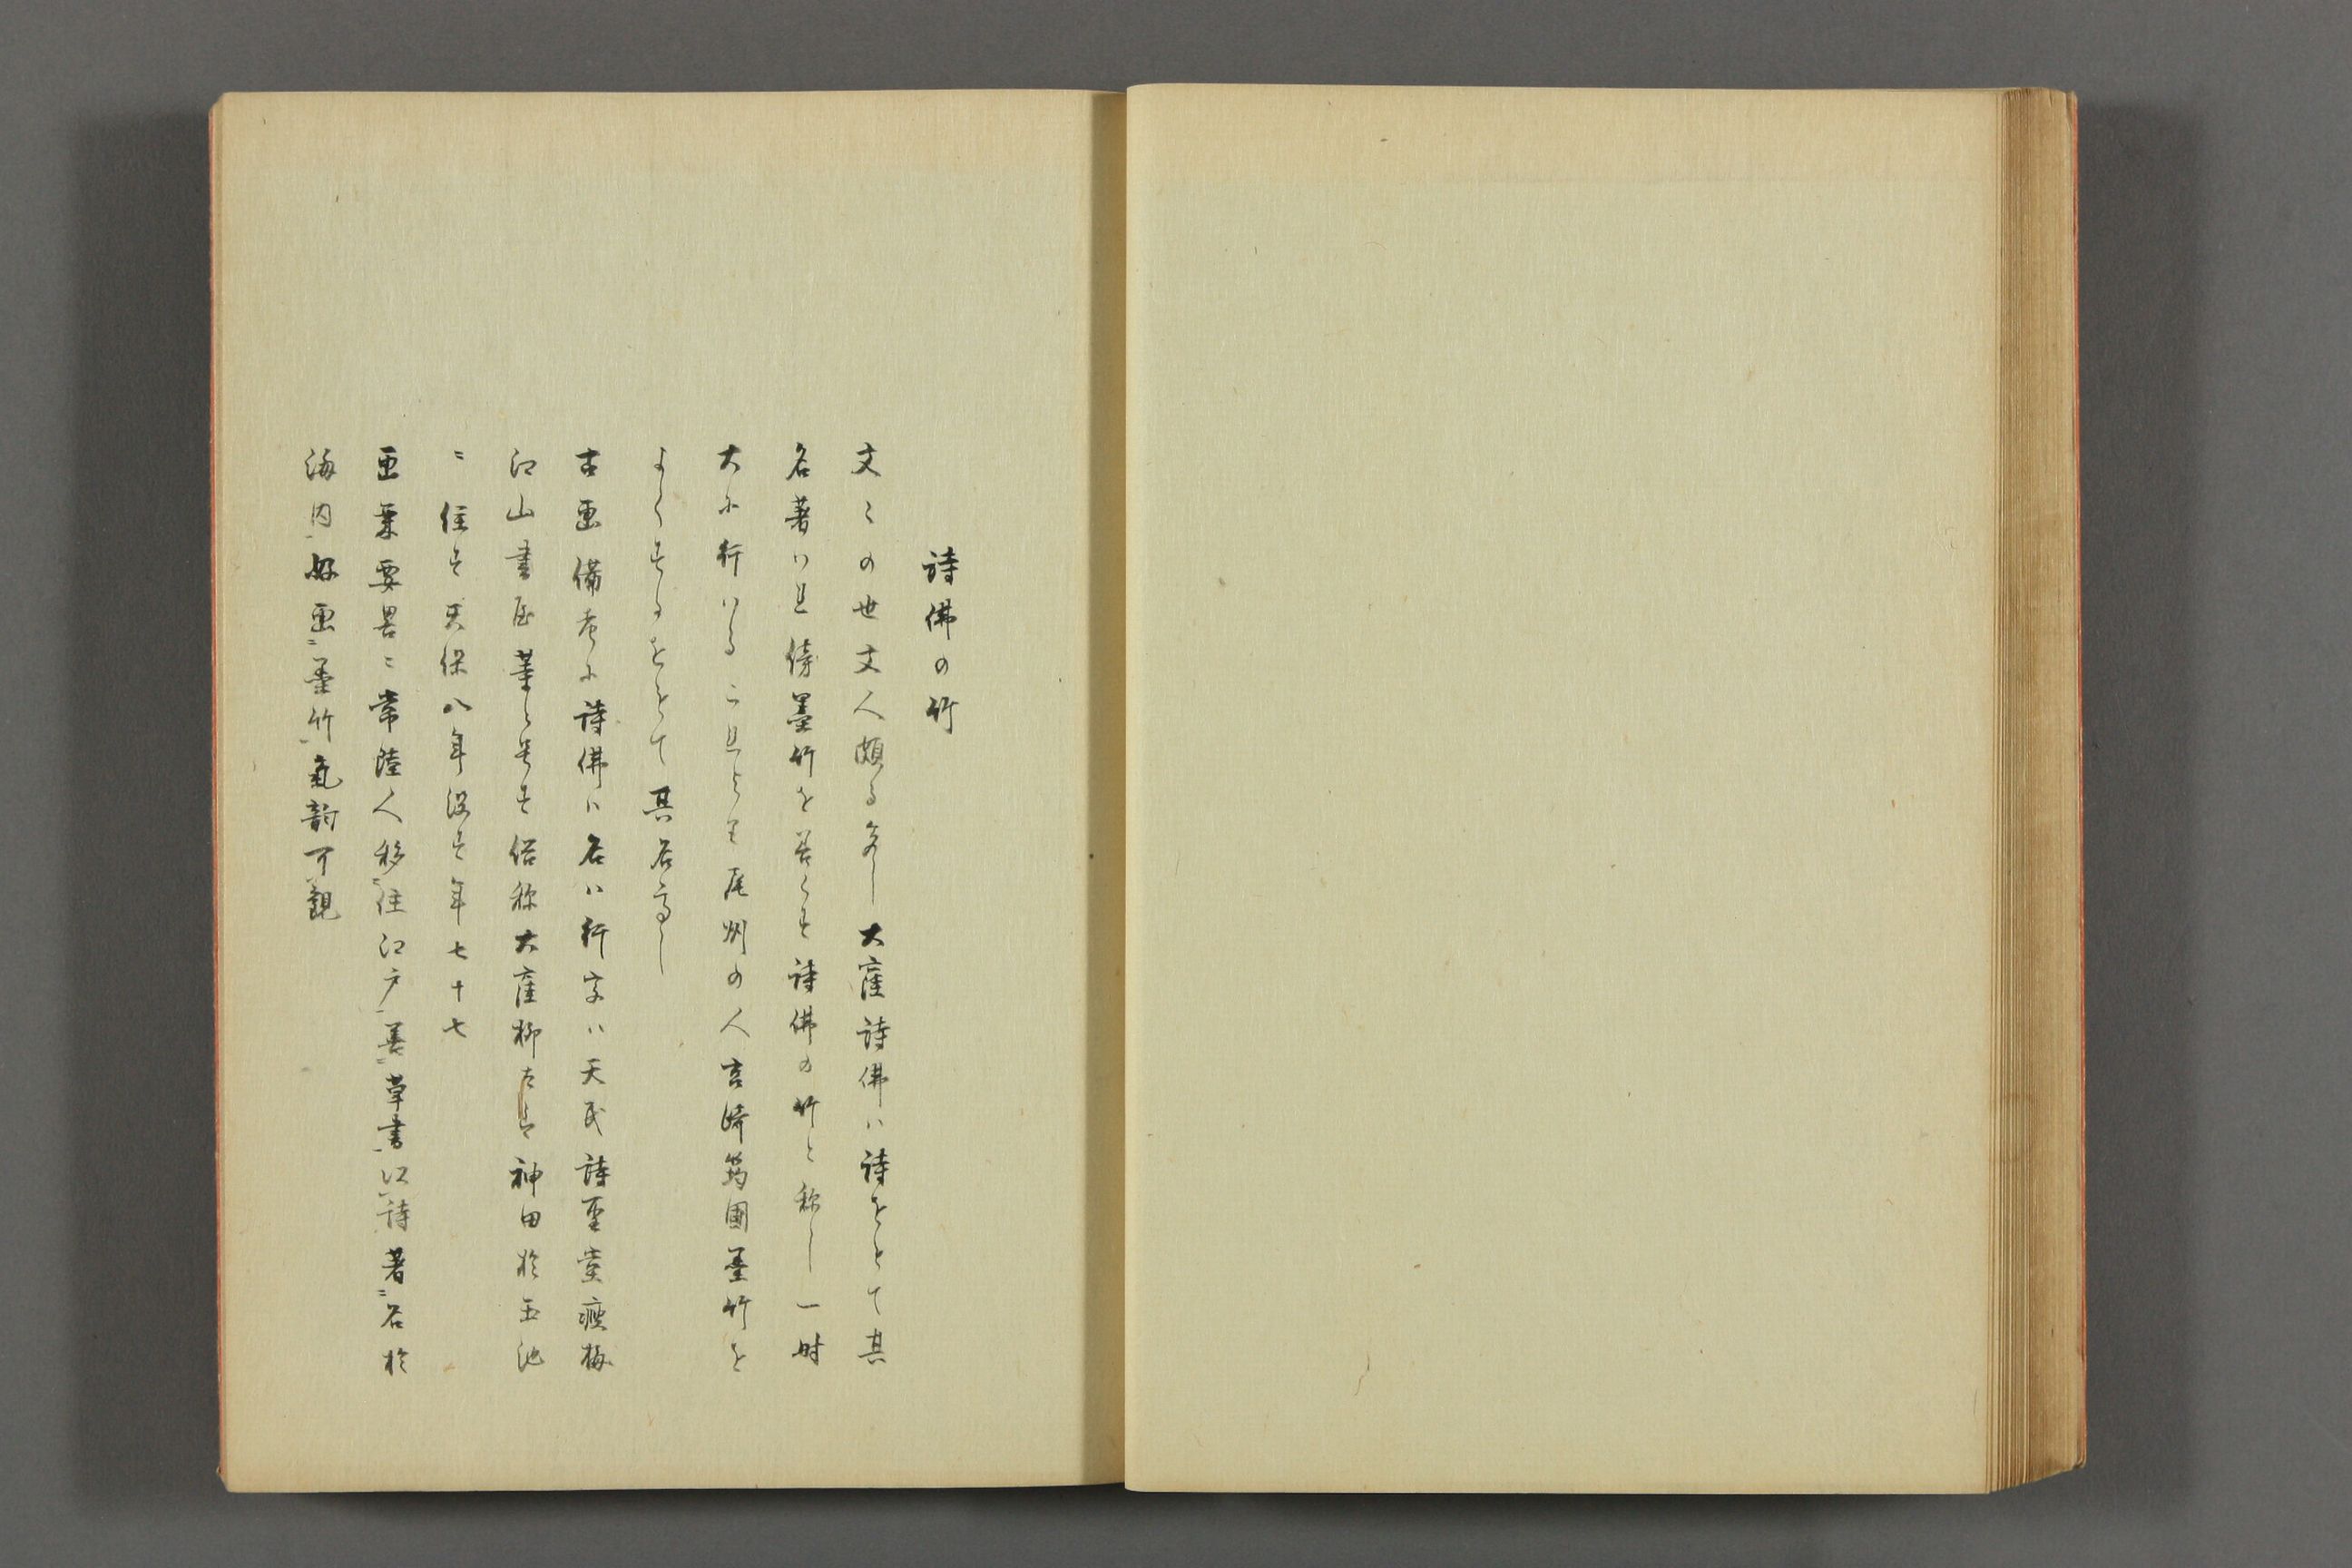 詩佛の竹
文々の世文人頗る多し大窪詩佛ハ詩をもて其
名著ハれ傍墨竹を善くす詩佛の竹と称し一時
大に行ハる これと 尾州の人 筠圃墨竹を
よくするをもて其名高し
古画備考に詩佛ハ名ハ行字ハ天民詩聖堂痩梅
江山書屋 と号す俗称大窪柳太郎神田於玉池
ニ住す天保八年没す年七十七
画乗要畧ニ常陸人移住江戸善草書以詩著名於
海内好画墨竹氣韵可觀